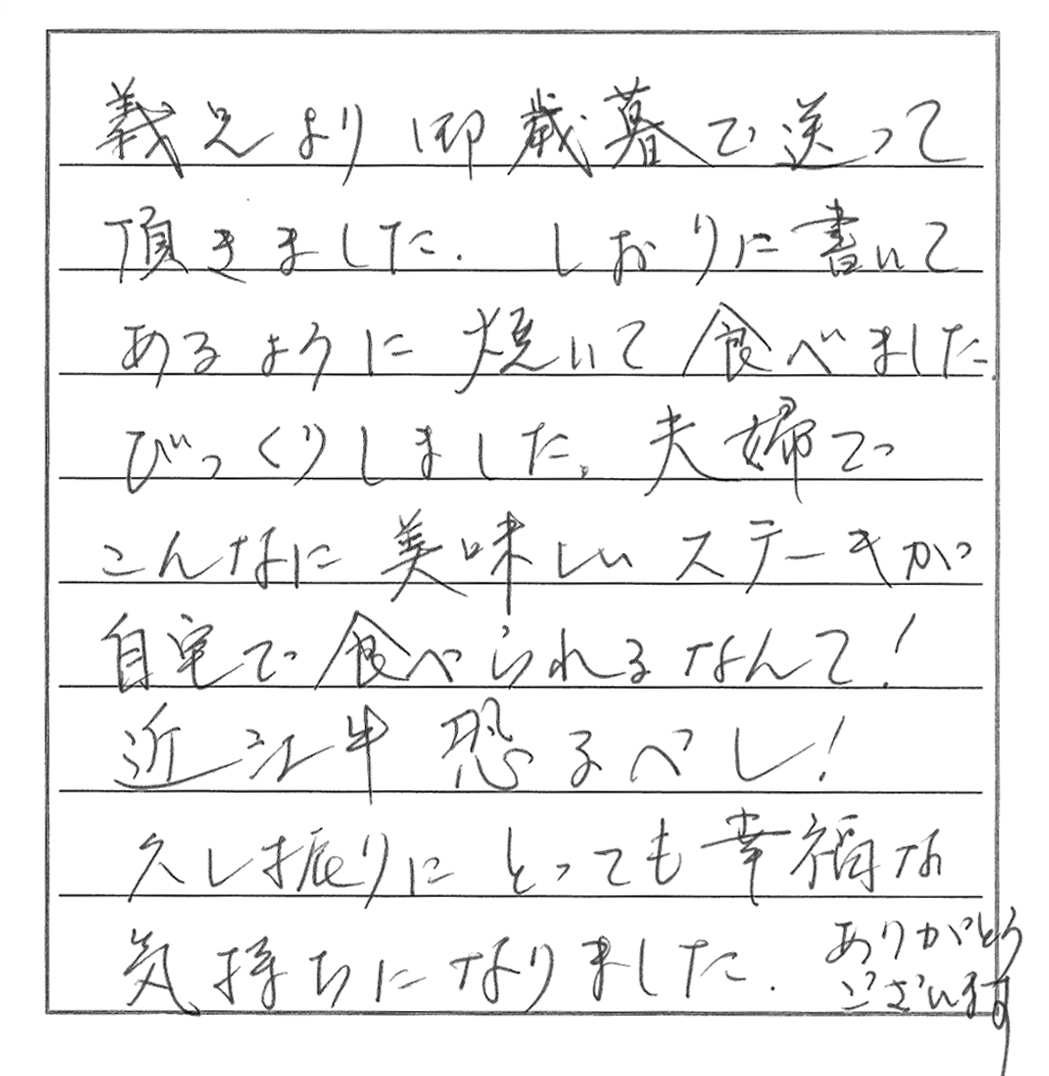 義兄より御歳暮で送って
頂きました. しおりに書いて
あるように焼いて食べました.
びっくりしました。夫婦で
こんなに美味しいステーキが
自宅で食べられるなんて!
近江牛恐るべし!
久し振りにとっても幸福な
気持ちになりました.
ありがとう
ございます